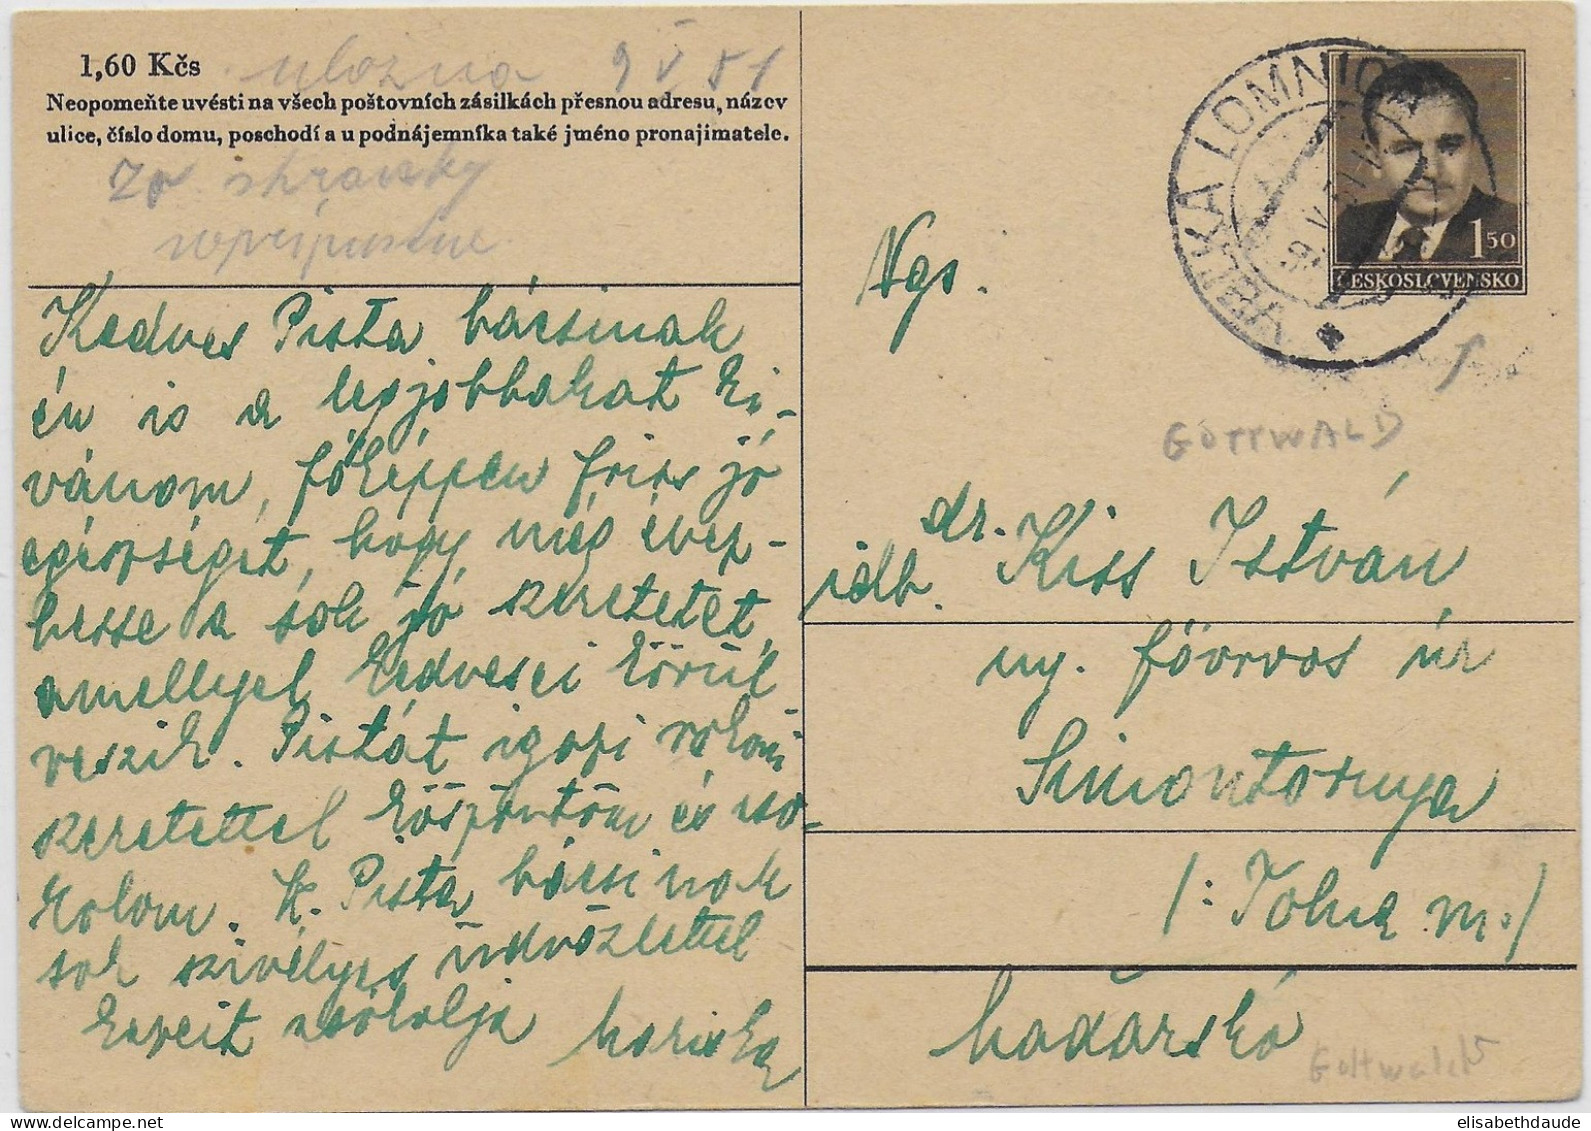 1,60 Kčs
9 V 51
Neopomeňte uvésti na všech poštovních zásilkách přesnou adresu, název
ulice, číslo domu, poschodí a u podnájemníka také jméno pronajimatele.
Kedves Pista bácsinak
én is a legjobbakat ki-
vánom, főképpen friss jó
egészségét, hogy még évez-
hesse a sok jó szeretetet,
amellyel kedvesei körül
veszik. Pistát igazi rokoni
szeretettel köszöntöm és cso-
kolom. K. Pista bácsinak
sok szivélyes üdvözlettel
kezeit csókolja Mariska
VEĽKÁ LOMNICA
1 50
ČESKOSLOVENSKO
Ngs.
GOTTWALD
dr. Kiss István
idb.
ny. főorvos úr
Simontornya
/: Tolna m. /
Maďarsko
Gottwald
elisabethdaude